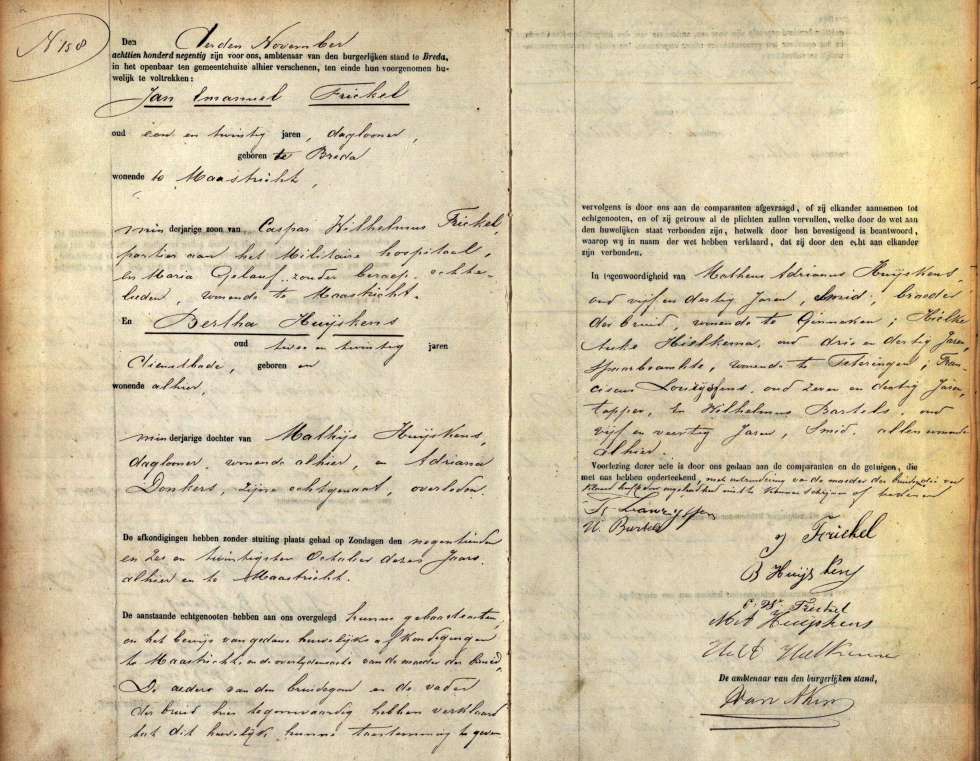 N 158
Den Derden November
achttien honderd negentig zijn voor ons, ambtenaar van den burgerlijken stand te Breda,
in het openbaar ten gemeentehuize alhier verschenen, ten einde hun voorgenomen hu-
welijk te voltrekken:
Jan Emanuel Frickel
oud een en twintig jaren, daglooner,
geboren te Breda
wonende te Maastricht,
minderjarige zoon van Caspar Wilhelmus Frickel,
portier aan het Militaire hospitaal,
en Maria Gelauf, zonder beroep, echte-
lieden, wonende te Maastricht.
En Bertha Huijskens
oud twee en twintig jaren
dienstbode, geboren en
wonende alhier,
minderjarige dochter van Mathijs Huijskens,
daglooner, wonende alhier, en Adriana
Donkers, zijne echtgenoot, overleden.
De afkondigingen hebben zonder stuiting plaats gehad op Zondagen den negentienden
en zes en twintigsten October dezes Jaars
alhier en te Maastricht.
De aanstaande echtgenooten hebben aan ons overgelegd hunne geboorteacten,
en het bewijs van gedane huwelijks afkondigingen
te Maastricht, en de overlijdensacte van de moeder der bruid.
De ouders van den bruidegom en de vader
der bruid hier tegenwoordig hebben verklaard
tot dit huwelijk hunne toestemming te geven
vervolgens is door ons aan de comparanten afgevraagd, of zij elkander aannemen tot
echtgenooten, en of zij getrouw al de plichten zullen vervullen, welke door de wet aan
den huwelijken staat verbonden zijn, hetwelk door hen bevestigend is beantwoord,
waarop wij in naam der wet hebben verklaard, dat zij door den echt aan elkander
zijn verbonden.
In tegenwoordigheid van Matheus Adrianus Huijskens,
oud vijf en dertig Jaren, Smid, broeder
der bruid, wonende te Ginneken; Hielke
Hielkema, oud drie en dertig Jaren,
wonende te Teteringen; Fran-
ciscus oud zeven en dertig Jaren,
tapper, En Wilhelmus Bartels, oud
vijf en veertig Jaren, Smid, allen wonende
alhier.
Voorlezing dezer acte is door ons gedaan aan de comparanten en de getuigen, die
met ons hebben onderteekend, met uitzondering van de moeder der bruidegom
J Frickel
B Huijskens
C. W. Frickel
M A Huijskens
De ambtenaar van den burgerlijken stand,